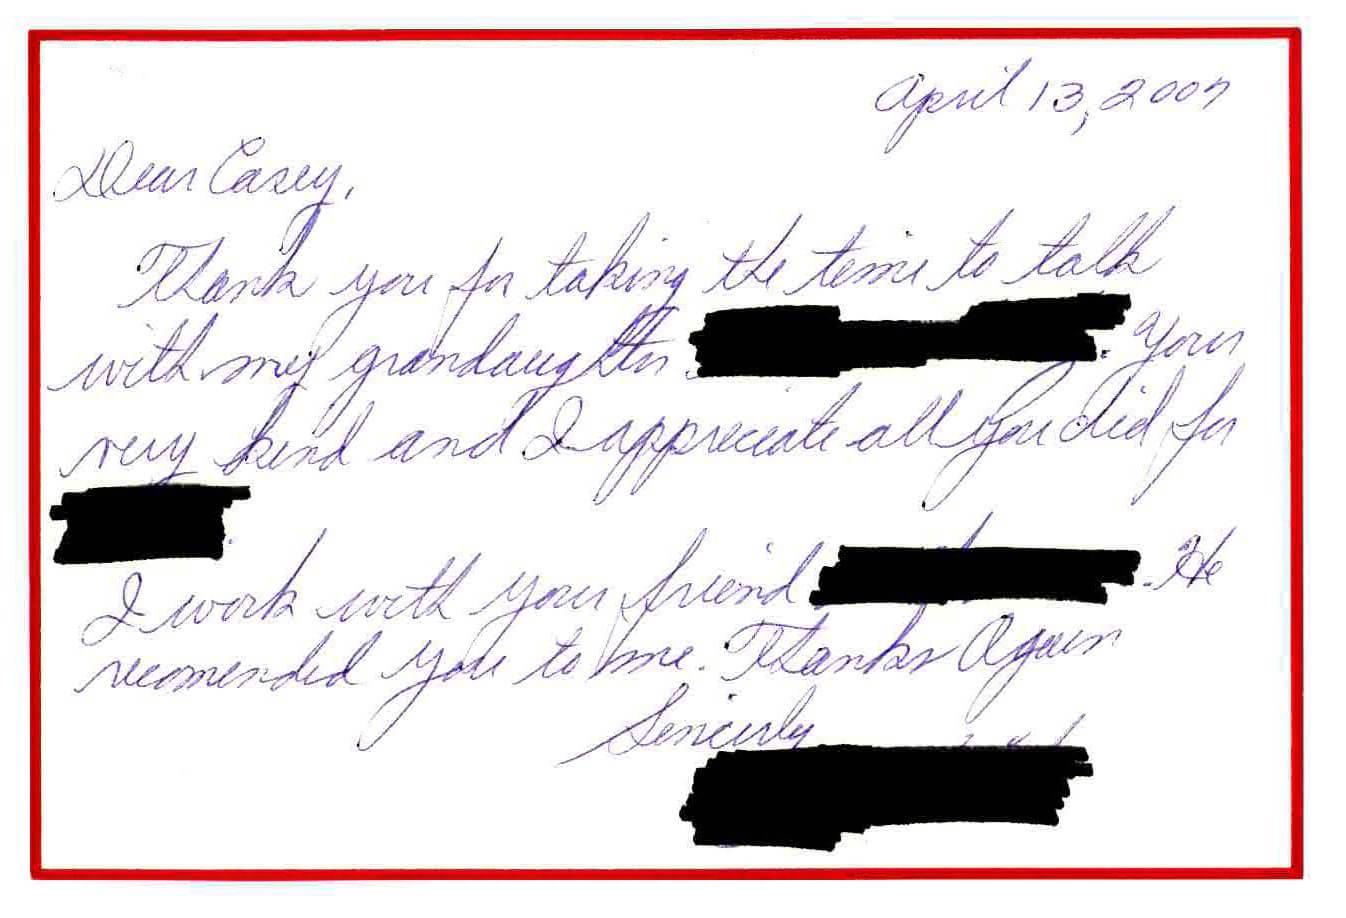 April 13, 2007
Dear Casey,
Thank you for taking the time to talk
with my grandaughter. Your
very kind and I appreciate all you did for
I work with your friend . He
recomended you to me. Thanks Again
Sincerly